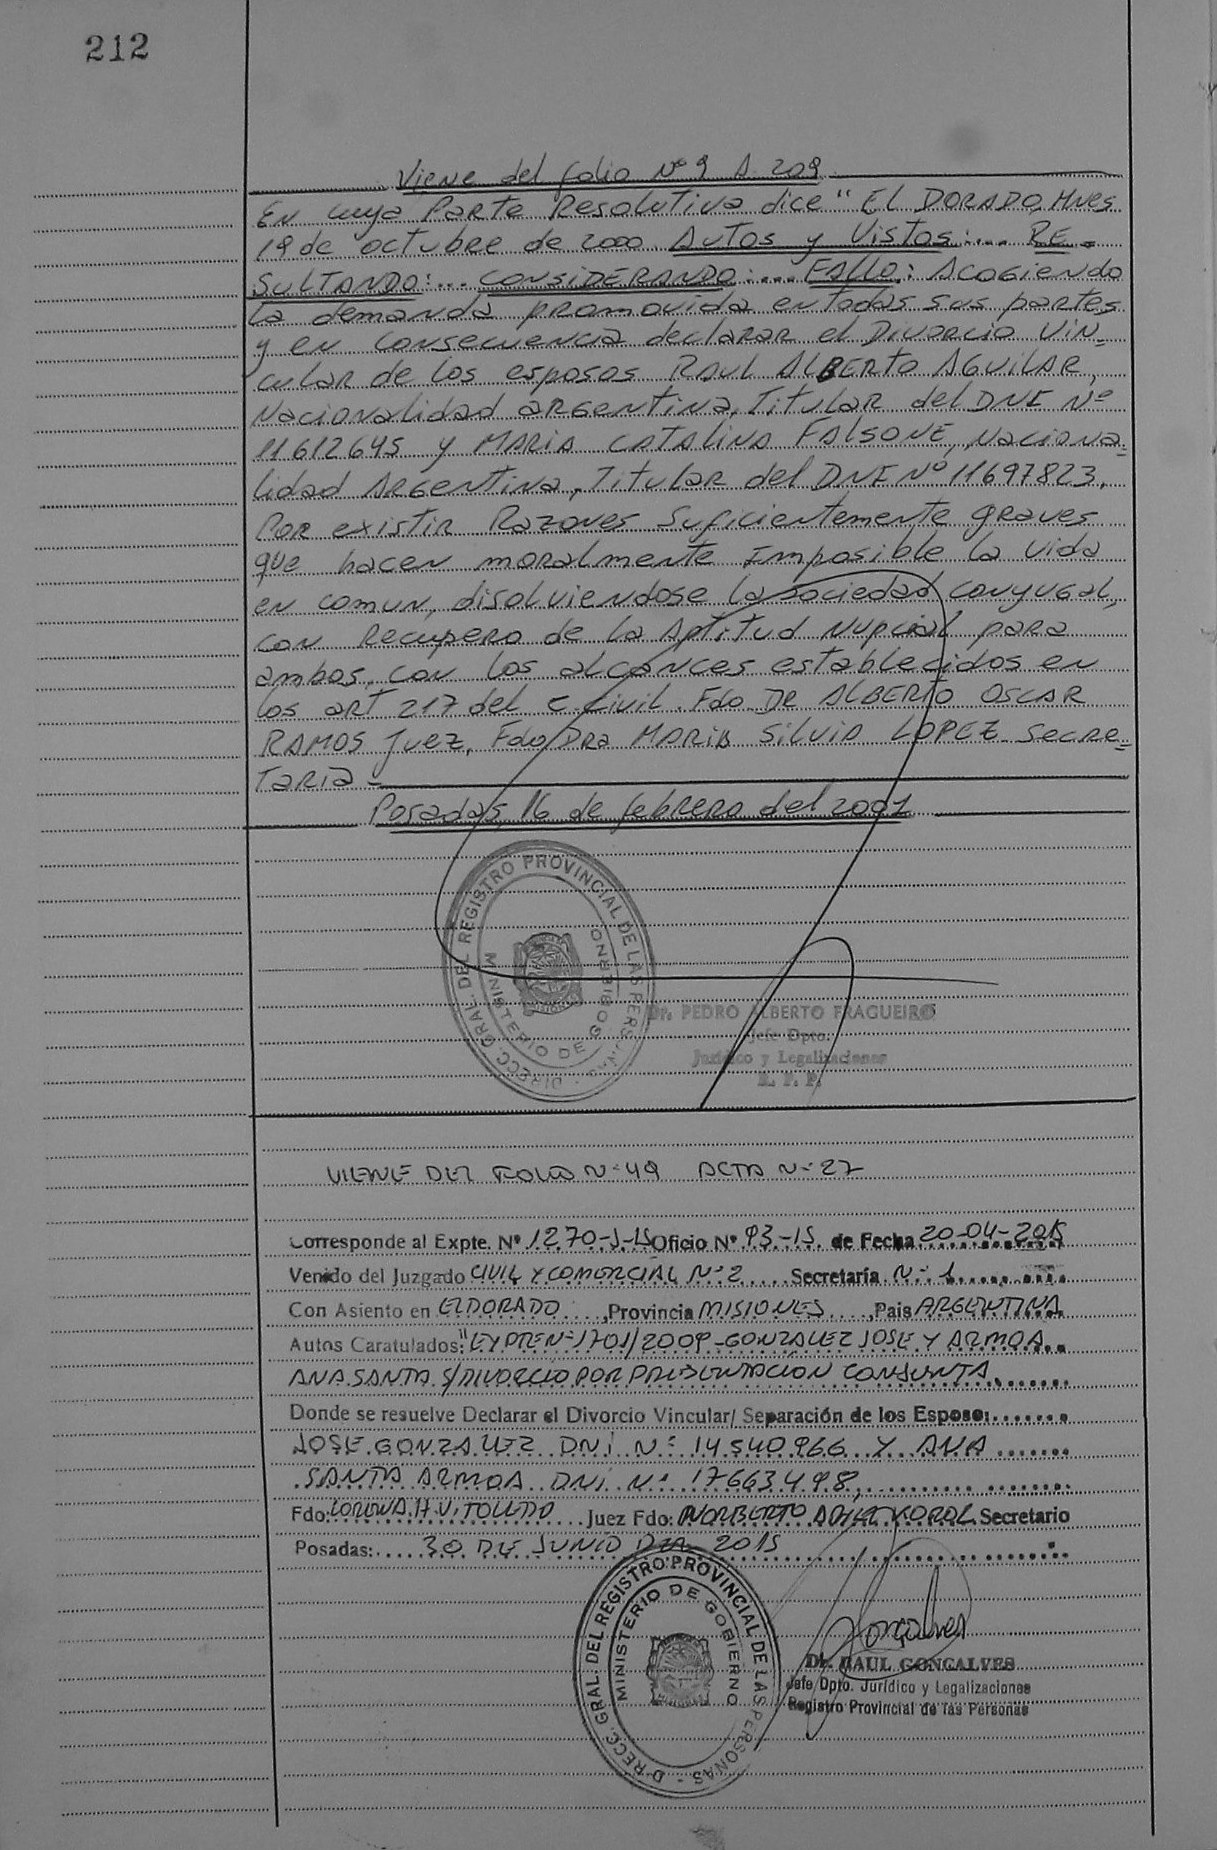 212
Viene del folio Nº 9 A 209
En cuya Parte Resolutiva dice " El DORADO, Mnes
19 de octubre de 2000 Autos y Vistos:... RE=
SULTANDO:... CONSIDERANDO:... FALLO: Acogiendo
la demanda promovida en todas sus partes
y en consecuencia declarar el Divorcio Vin=
cular de los esposos RAUL ALBERTO AGUILAR,
Nacionalidad argentina, Titular del DNI Nº
11612645 y MARIA CATALINA FALSONE, Naciona=
lidad Argentina, Titular del DNI Nº 11697823.
Por existir Razones Suficientemente graves
que hacen moralmente Imposible la vida
en comun, disolviendose la sociedad conyugal,
con recupero de la Aptitud Nupcial para
ambos, con los alcances establecidos en
los art 217 del C. Civil. Fdo DR ALBERTO OSCAR
RAMOS Juez, Fdo Dra MARIA SILVIA LOPEZ Secre=
taria -
Posadas, 16 de febrero del 2001
DIRECC. GRAL. DEL REGISTRO PROVINCIAL DE LAS PERSONAS
MINISTERIO DE GOBIERNO
Dr. PEDRO ALBERTO FRAGUEIRO
Jefe Dpto.
Jurídico y Legalizaciones
R. P. P.
VIENE DEL FOLIO N=49 ACTA N=27
Corresponde al Expte. Nº 1270-J-15 Oficio Nº 93-15. de Fecha 20-04-2015
Venido del Juzgado CIVIL Y COMERCIAL N=2 Secretaría N=1
Con Asiento en ELDORADO, Provincia MISIONES, Pais ARGENTINA
Autos Caratulados: "EXPTE N=1701/2009-GONZALEZ JOSE Y ARMOA
ANA SANTA S/DIVORCIO POR PRESENTACION CONJUNTA.
Donde se resuelve Declarar el Divorcio Vincular/ Separación de los Esposo:
JOSE GONZALEZ DNI N= 14.540.966 Y ANA
SANTA ARMOA DNI N= 17663498,
Fdo: LORENA H.V. TOLEDO Juez Fdo: NORBERTO KOROL Secretario
Posadas: 30 DE JUNIO DEL 2015
DIRECC. GRAL. DEL REGISTRO PROVINCIAL DE LAS PERSONAS
MINISTERIO DE GOBIERNO
Goncalves
Dr. RAUL GONCALVES
Jefe Dpto. Jurídico y Legalizaciones
Registro Provincial de las Personas